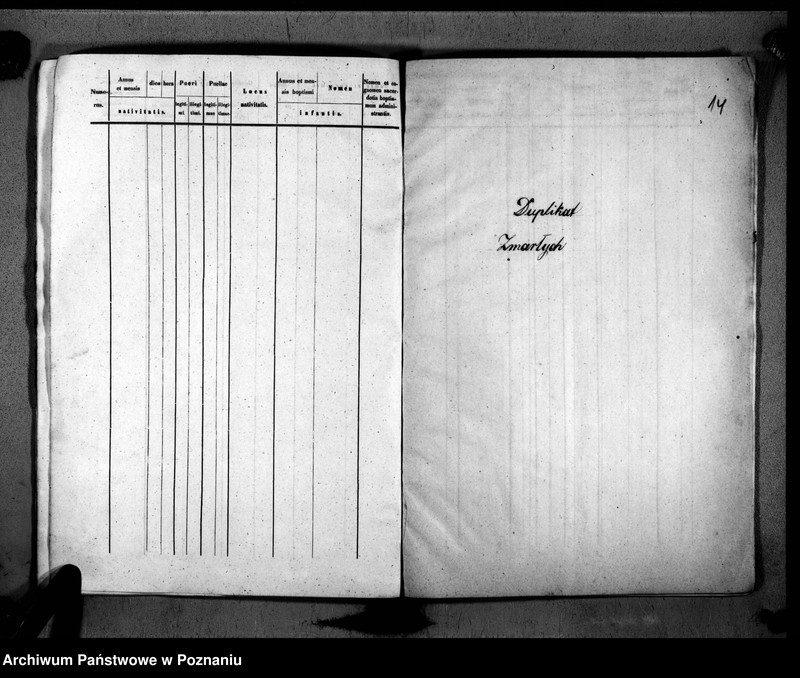 Nume-
rus.
Annus
et mensis
dies
hora
nativitatis.
Pueri
legiti-
mi
illegi-
timi.
Puellae
legiti-
mae
illegi-
timae
Locus
nativitatis.
Annus et men-
sis baptismi
Nomen
infantis.
Nomen et co-
gnomen sacer-
dotis baptis-
mum admini-
strantis.
14
Duplikat
Zmarłych
Archiwum Państwowe w Poznaniu